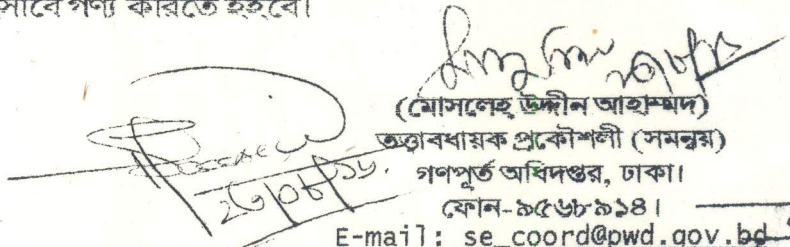 সাবে গণ্য করিতে হইবে।
(মোসলেহ্ উদ্দীন আহাম্মদ)
তত্ত্বাবধায়ক প্রকৌশলী (সমন্বয়)
গণপূর্ত অধিদপ্তর, ঢাকা।
ফোন-৯৫৬৮৯১৪।
E-mail: se_coord@pwd.gov.bd